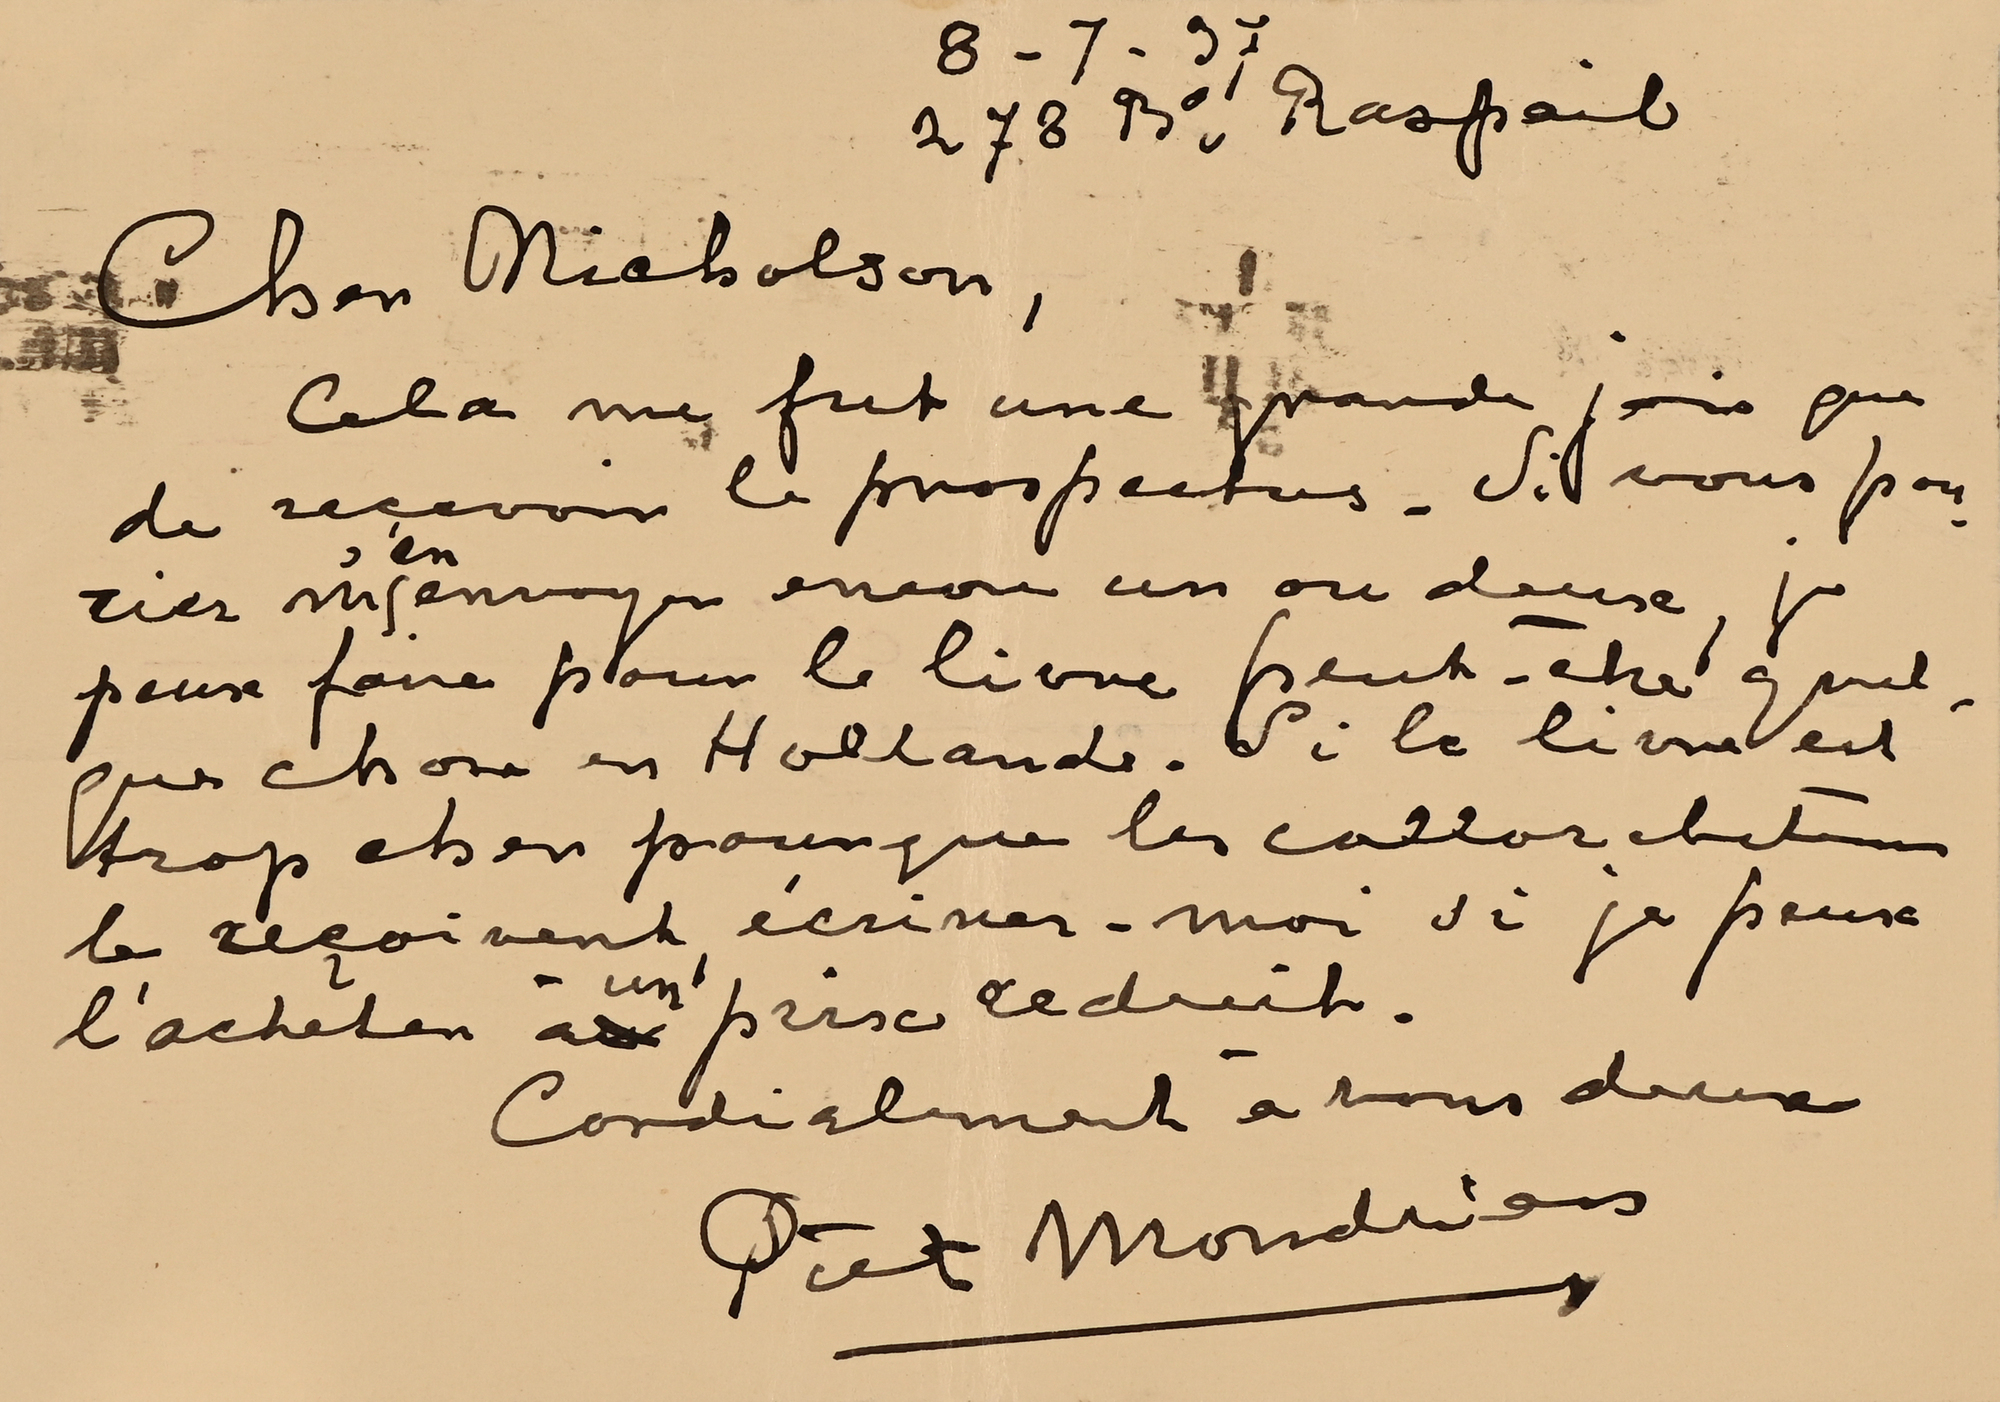 8-7-37
278 Bd. Raspail
Cher Nicholson,
Cela me fut une grande joie que
de reçevoir le prospectus. Si vous pou-
riez m'en envoyer encore un ou deux, je
peux faire pour le livre peut-être quel-
que chose en Hollande. Si le livre est
trop cher pour que les collaborateurs
le reçoivent, écrivez-moi si je peux
l'acheter à un prix reduit.
Cordialement à vous deux
Piet Mondrian